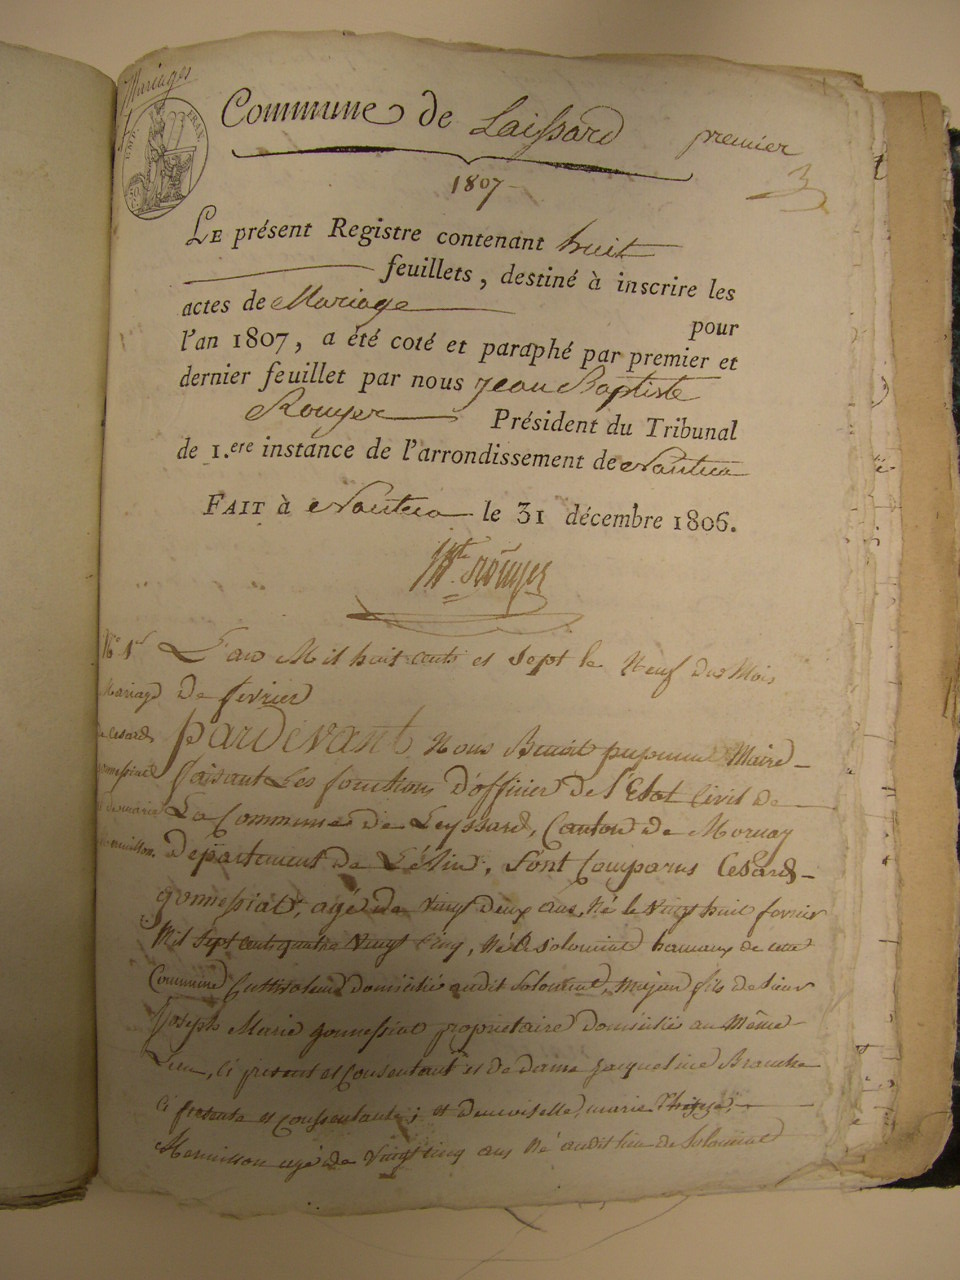 Mariages
EMP. FRAN.
Commune de Laissard premier
1807
3
LE présent Registre contenant huit
feuillets, destiné à inscrire les
actes de Mariage pour
l'an 1807, a été coté et paraphé par premier et
dernier feuillet par nous Jean Baptiste
Rouyer Président du Tribunal
de 1.ere instance de l'arrondissement de Nantua
FAIT à Nantua le 31 décembre 1806.
Bte Rouyer
No 1er
L'an Mil huit cents et sept le Neuf du Mois
Mariage
de fevrier
de Cesard
pardevant Nous Benoit Maire
gonnessiat
faisant Les fonctions d'officier de l'Etat Civil de
La Commune de Leyssard, Canton de Mornay
Departement de L'Ain, sont Comparus Cesard
gonnessiat, agé de vingt deux ans, Né le vingt huit fevrier
Mil sept cent quatre vingt Cinq, Né à Solomiat hameaux de cette
Commune Cultivateur domicilié audit Solomiat, Majeur fils de sieur
Joseph Marie gonnessiat proprietaire domicilié au Même
Lieu, Ci present et Consentant et de dame Jacqueline Branche
Ci presente et Consentante; et demoiselle marie
agé de vingt cinq ans Né audit lieu de Solomiat